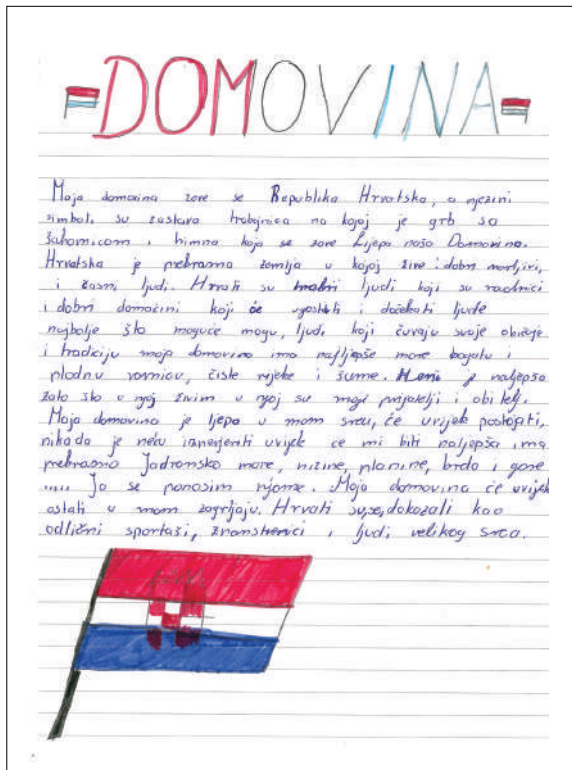 DOMOVINA
Moja domovina zove se Republika Hrvatska, a njezini
simboli su zastava trobojnica na kojoj je grb sa
šahovnicom i himna koja se zove Lijepa naša Domovino.
Hrvatska je prekrasna zemlja u kojoj žive: dobri marljivi,
i časni ljudi. Hrvati su hrabri ljudi koji su radnici
i dobri domaćini koji će ugostiti i dočekati ljude
najbolje što moguće mogu, ljudi koji čuvaju svoje običaje
i tradiciju moja domovina ima najljepše more bogatu i
plodnu ravnicu, čiste rijeke i šume. Meni je najlepša
zato što u njoj živim u njoj su moji prijatelji i obitelj.
Moja domovina je ljepa u mom srcu, će uvijek postojati,
nikada je neću iznevjeriti uvijek će mi biti naljepša ima
prekrasno Jadransko more, nizine, planine, brda i gore
..... Ja se ponosim njome. Moja domovina će uvijek
ostati u mom zagrljaju. Hrvati su,se,dokazali kao
odlični sportaši, znanstvenici i ljudi velikog srca.